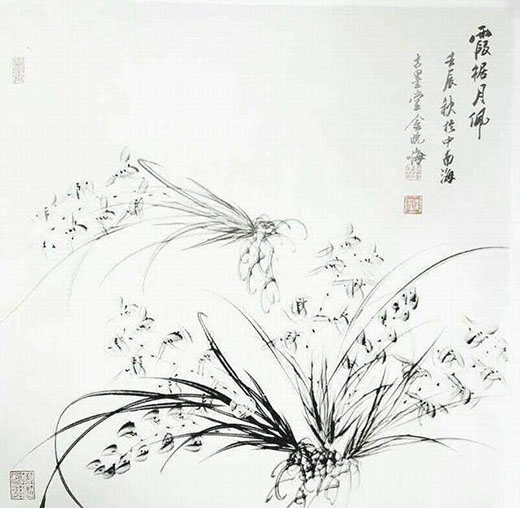 霞裾月佩
壬辰秋於中南海
古墨堂金晓海